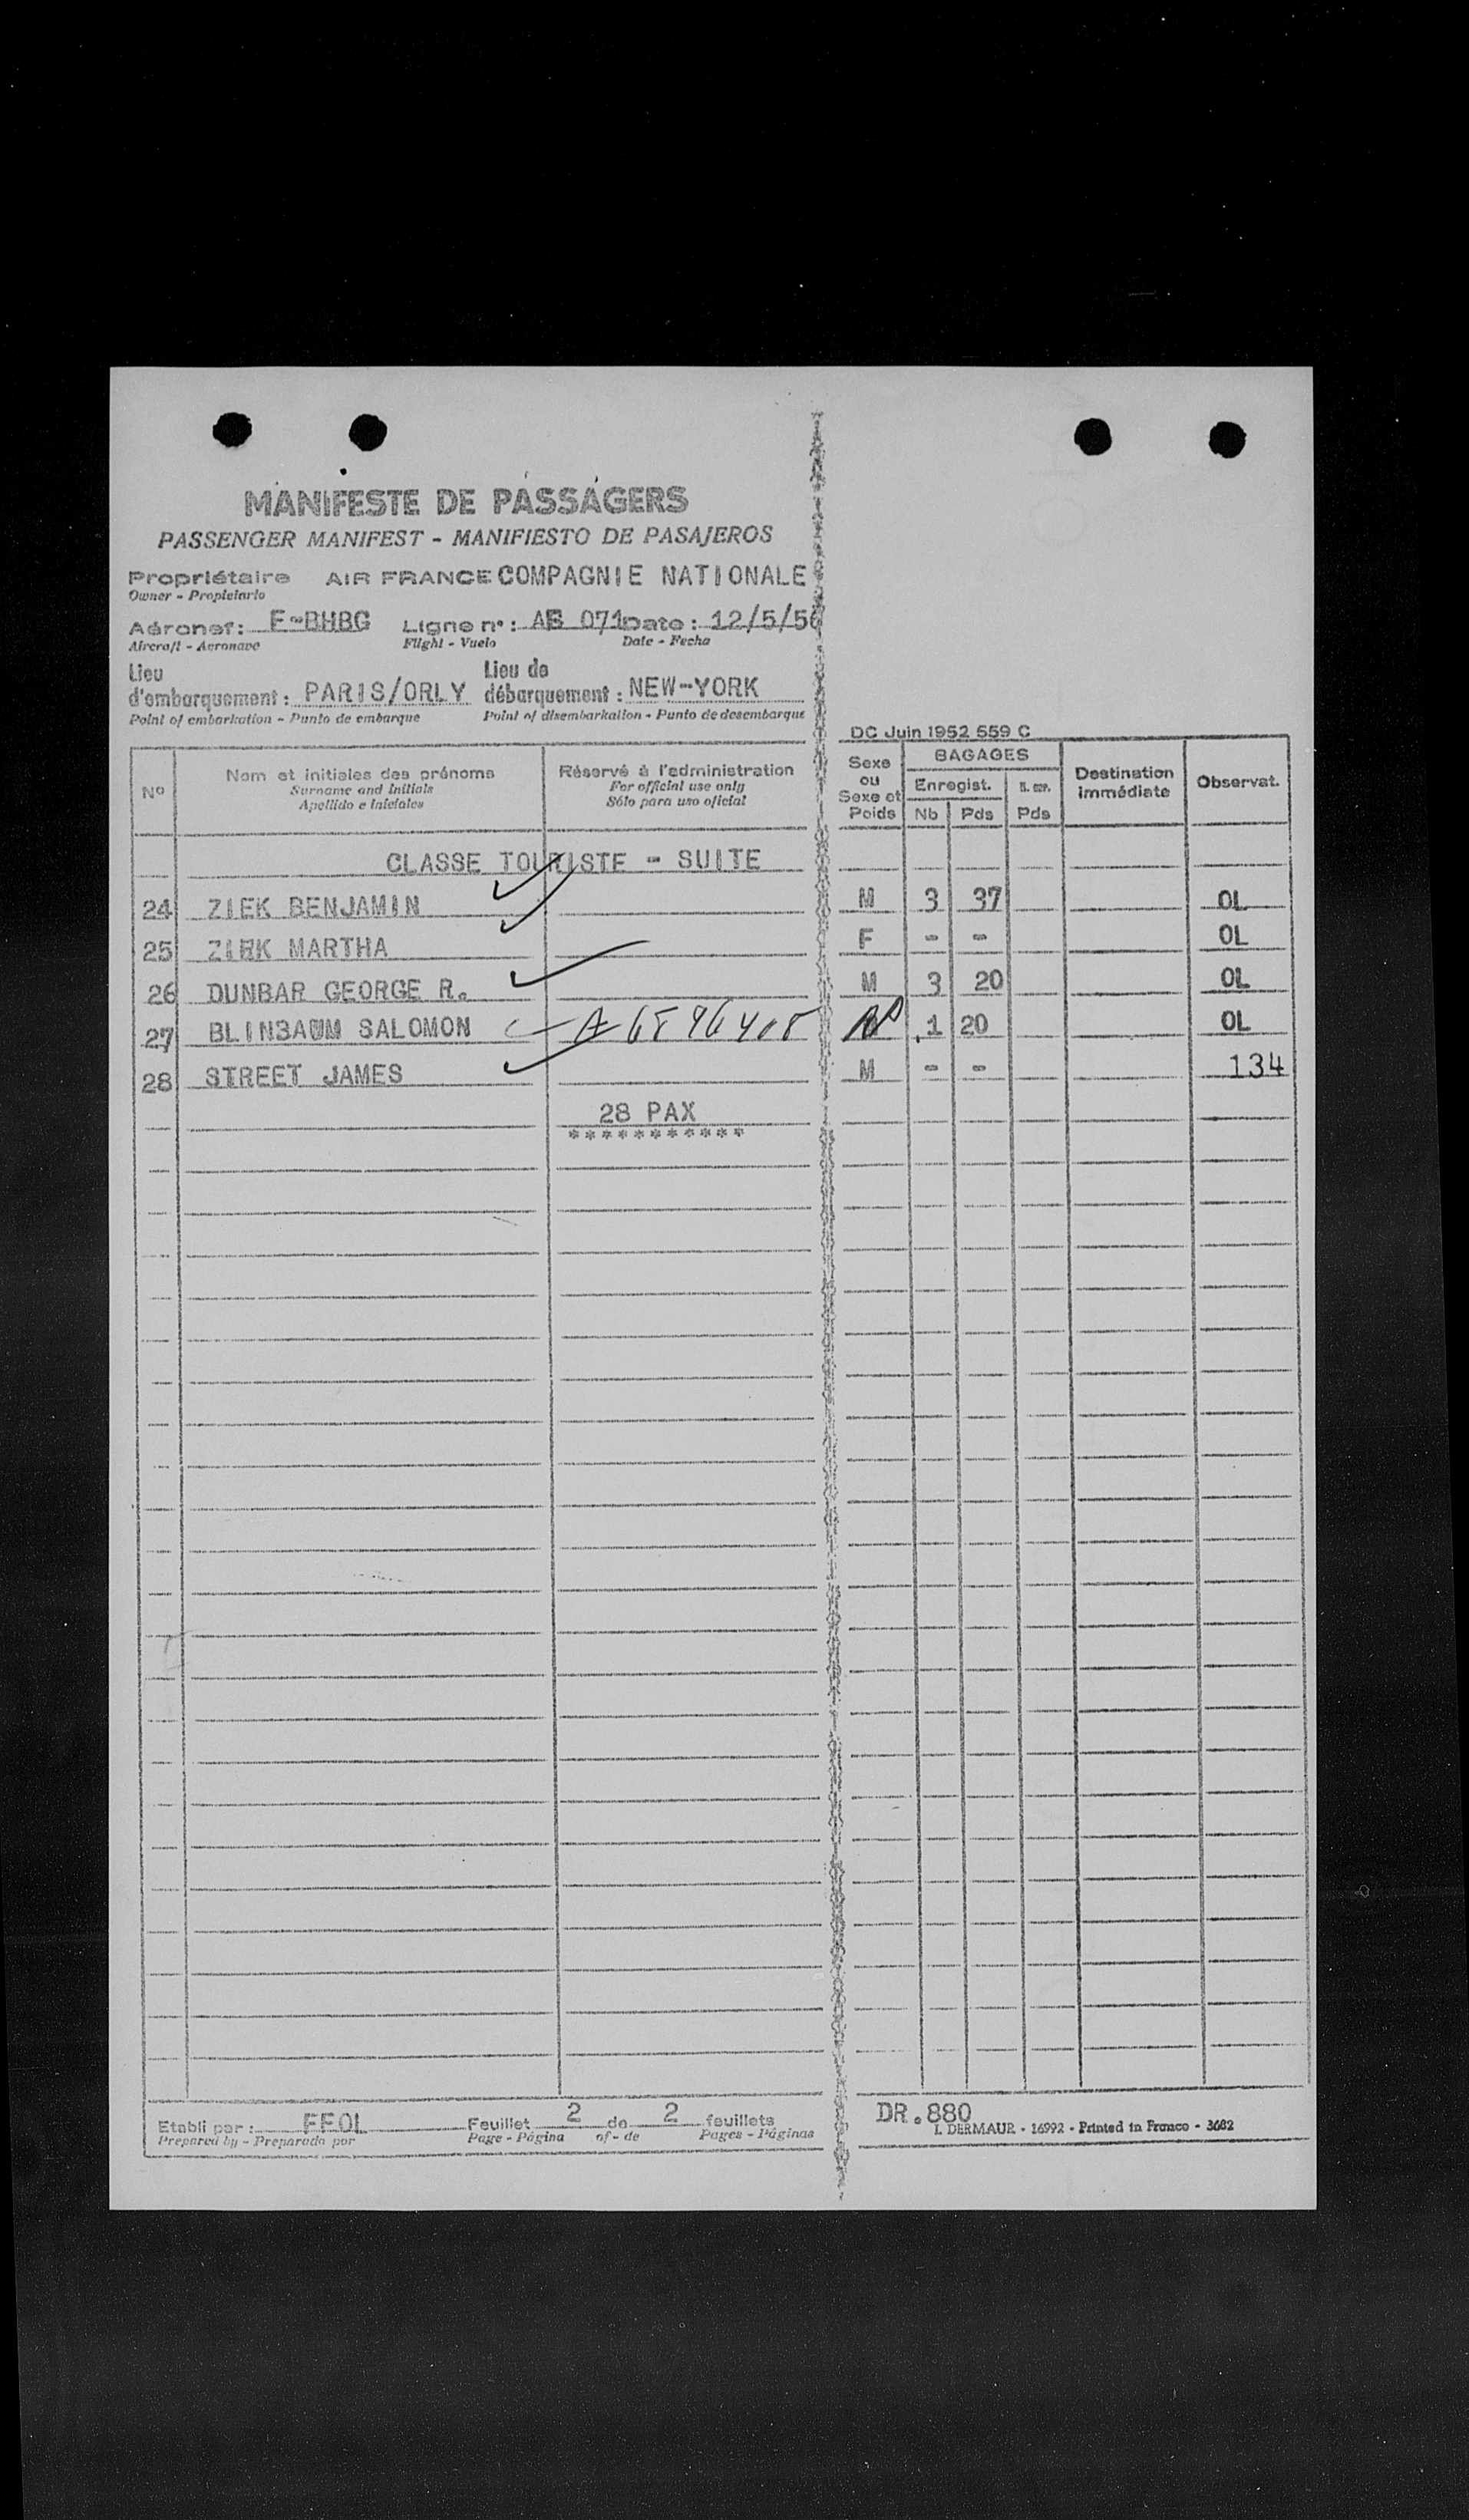 MANIFESTE DE PASSAGERS
PASSENGER MANIFEST - MANIFIESTO DE PASAJEROS
Propriétaire AIR FRANCE COMPAGNIE NATIONALE
Owner - Propietario
Aéronef: F-BHBG Ligne n°: 071 Date: 12/5/56
Aircraft - Aeronave Flight - Vuelo Date - Fecha
Lieu d'embarquement: PARIS/ORLY Lieu de débarquement: NEW-YORK
Point of embarkation - Punto de embarque Point of disembarkation - Punto de desembarque
DC Juin 1952 559 C
N° Nom et initiales des prénoms Réservé à l'administration Sexe ou Sexe et Poids BAGAGES Destination immédiate Observat.
Surname and initials For official use only Enregist.
Apellido e iniciales Sólo para uso oficial Nb Pds Pds
CLASSE TOURISTE - SUITE
24 ZIEK BENJAMIN M 3 37 OL
25 ZIEK MARTHA F - - OL
26 DUNBAR GEORGE R. M 3 20 OL
27 BLINBAUM SALOMON 1 20 OL
28 STREET JAMES M - - 134
28 PAX
***********
Etabli par: Feuillet 2 de 2 feuillets DR.880
Prepared by - Preparado por Page - Página of - de Pages - Páginas I. DERMAUR - 16992 - Printed in France - 3682